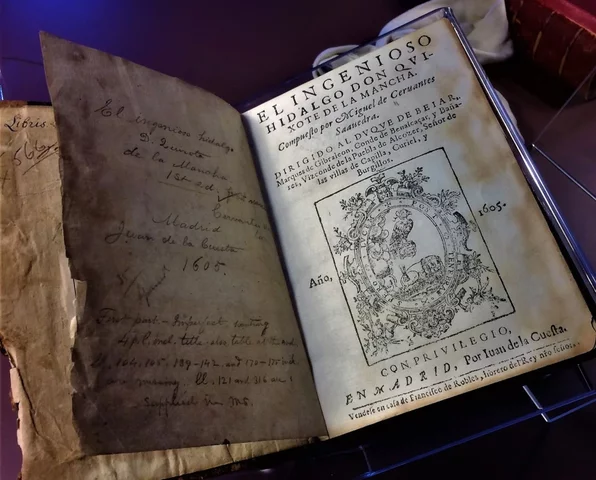 Libris
El ingenioso hidalgo
D. Quixote
de la Mancha
1st ed.
Cervantes
Madrid
Juan de la Cuesta
1605.
First part. - Imperfect, wanting
4 p.l. incl. title, also table at the end
ll. 104, 105, 139-142, and 170-175
are missing. ll. 121 and 316 are
supplied in MS.
EL INGENIOSO
HIDALGO DON QVI-
XOTE DE LA MANCHA.
Compuesto por Miguel de Ceruantes
Saauedra.
DIRIGIDO AL DVQVE DE BEIAR,
Marques de Gibraleon, Conde de Benalcaçar, y Baña-
res, Vizconde de la Puebla de Alcozer, Señor de
las villas de Capilla, Curiel, y
Burgillos.
Año, 1605.
CON PRIVILEGIO,
EN MADRID, Por Iuan de la Cuesta.
Vendese en casa de Francisco de Robles, librero del Rey nro señor.